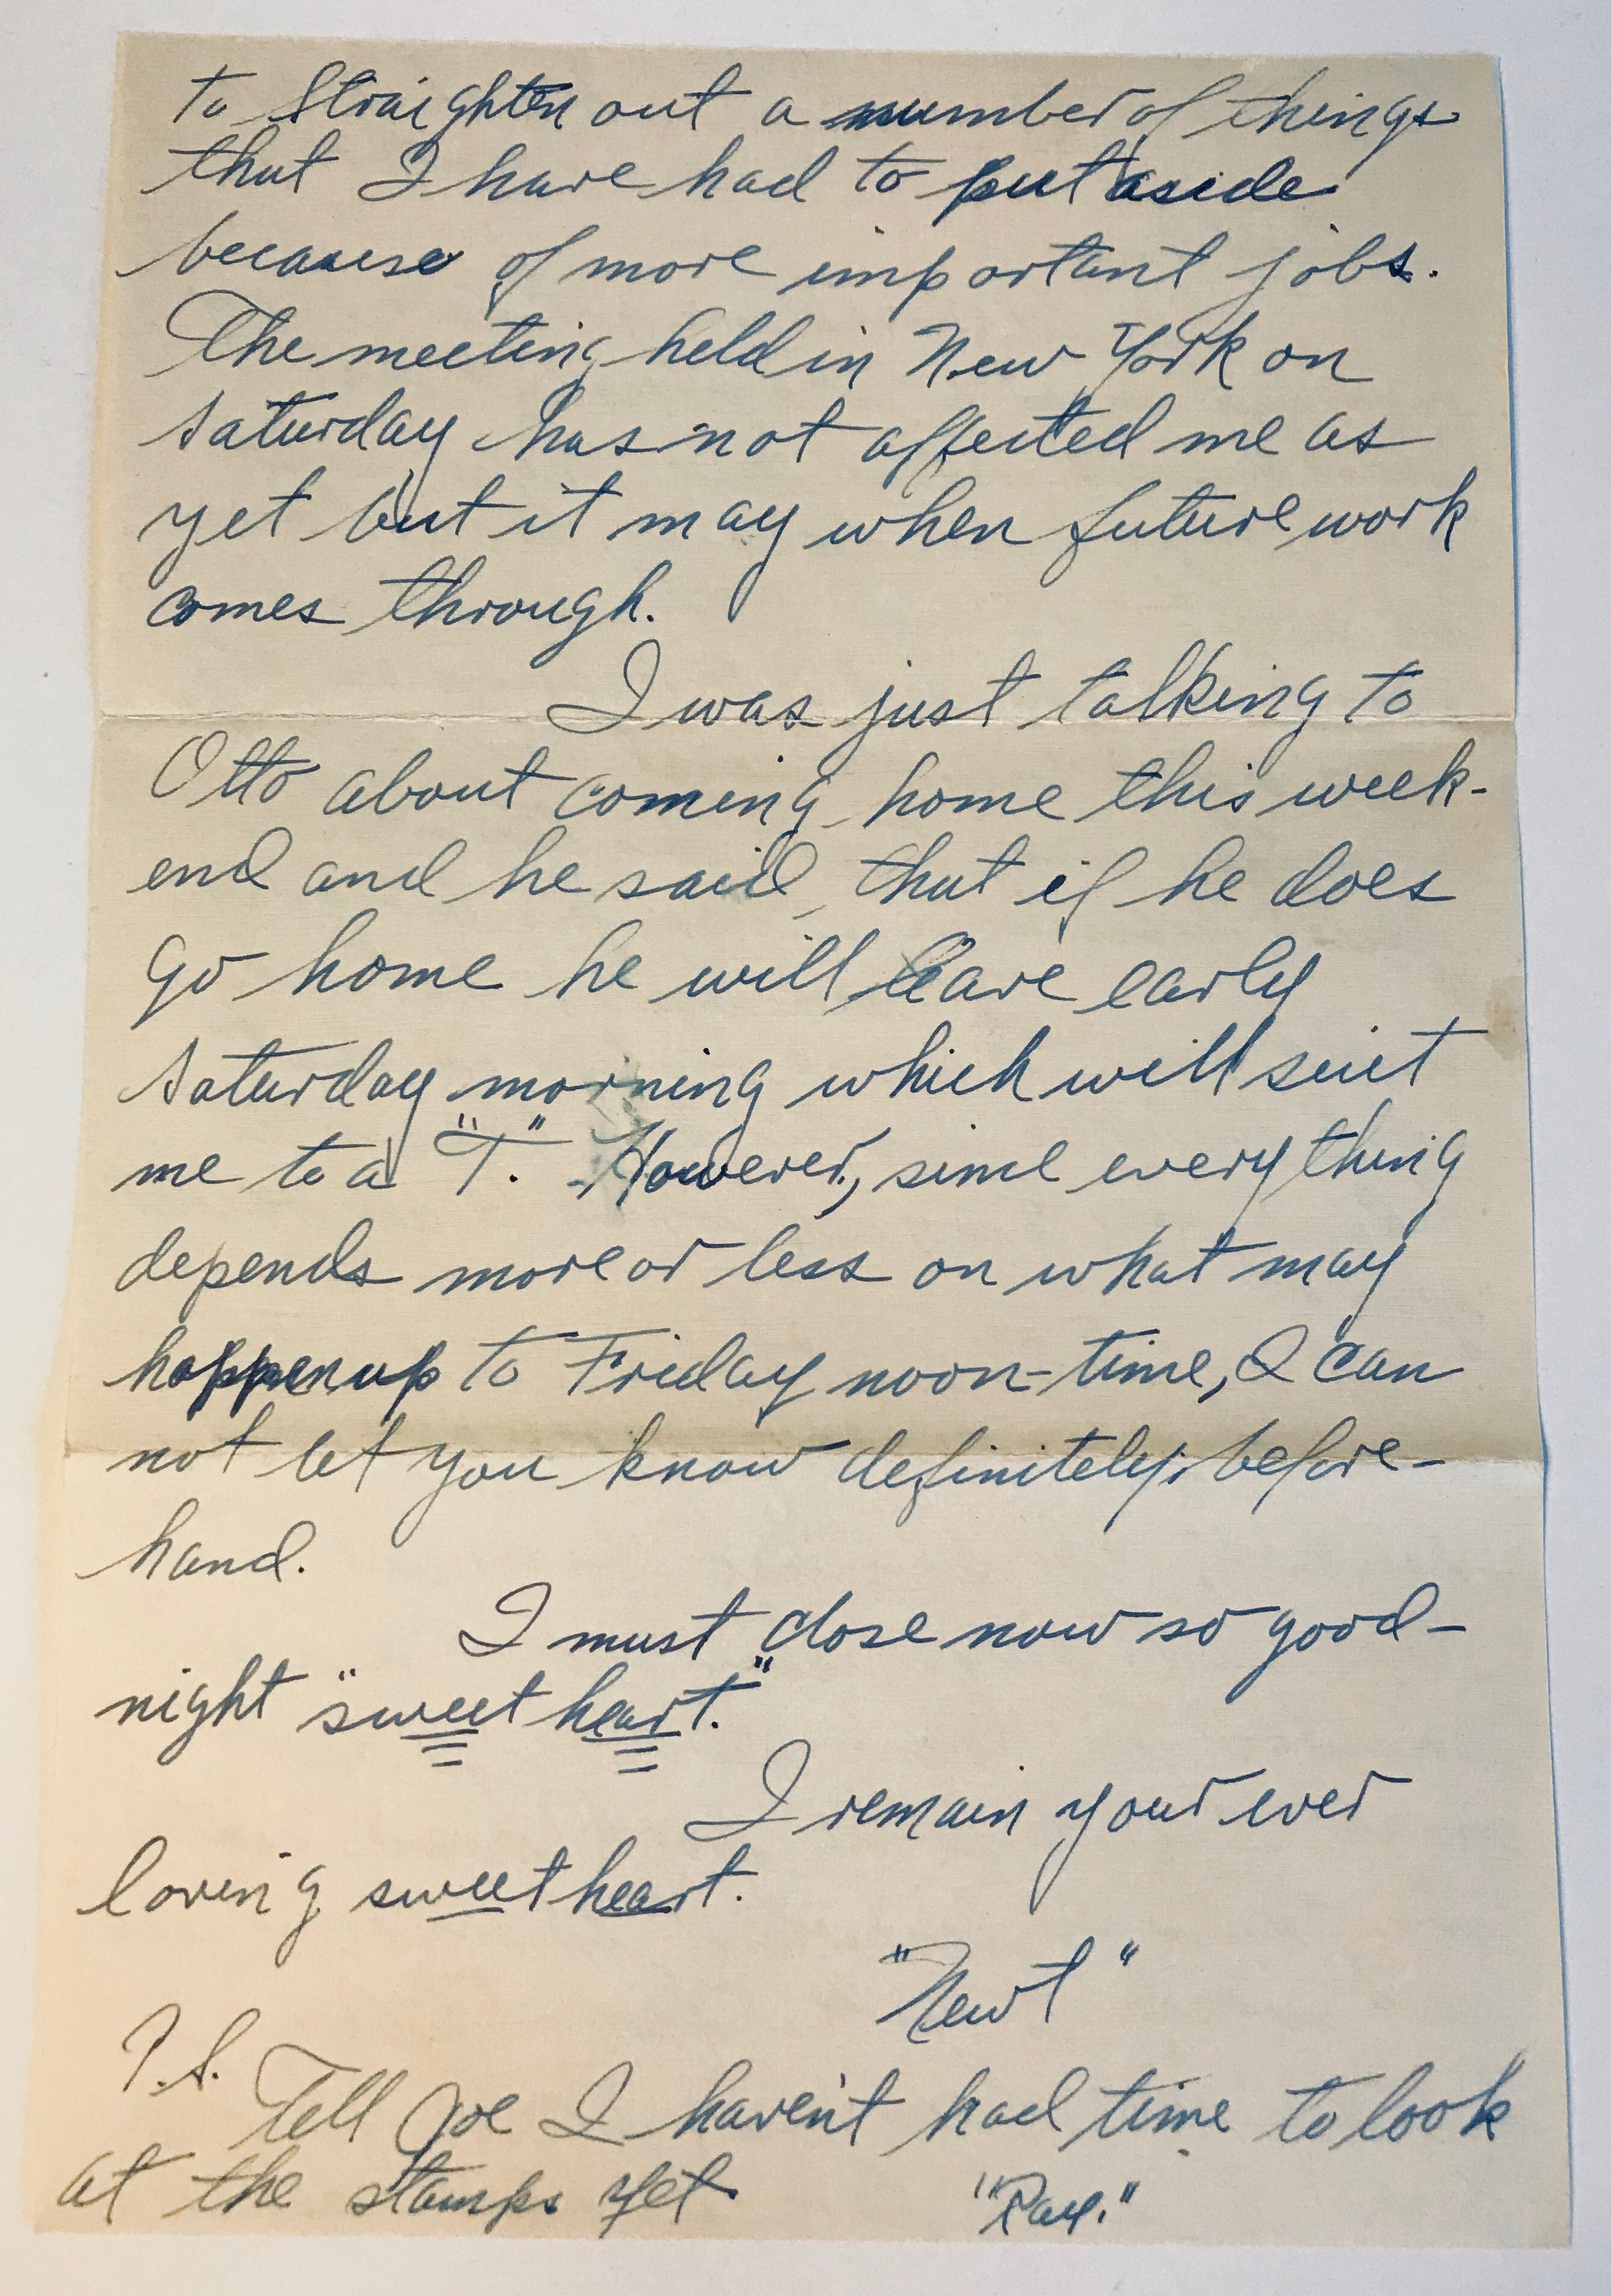 to straighten out a number of things
that I have had to put aside
because of more important jobs.
The meeting held in New York on
Saturday has not affected me as
yet but it may when future work
comes through.
I was just talking to
Otto about coming home this week-
end and he said, that if he does
go home he will leave early
Saturday morning which will suit
me to a "T". However, since everything
depends more or less on what may
happen up to Friday noon-time, I can
not let you know definitely, before-
hand.
I must close now so good-
night "sweetheart."
I remain your ever
loving sweetheart.
"Newt"
P.S.
Tell Joe I haven't had time to look
at the stamps yet
"Ray."